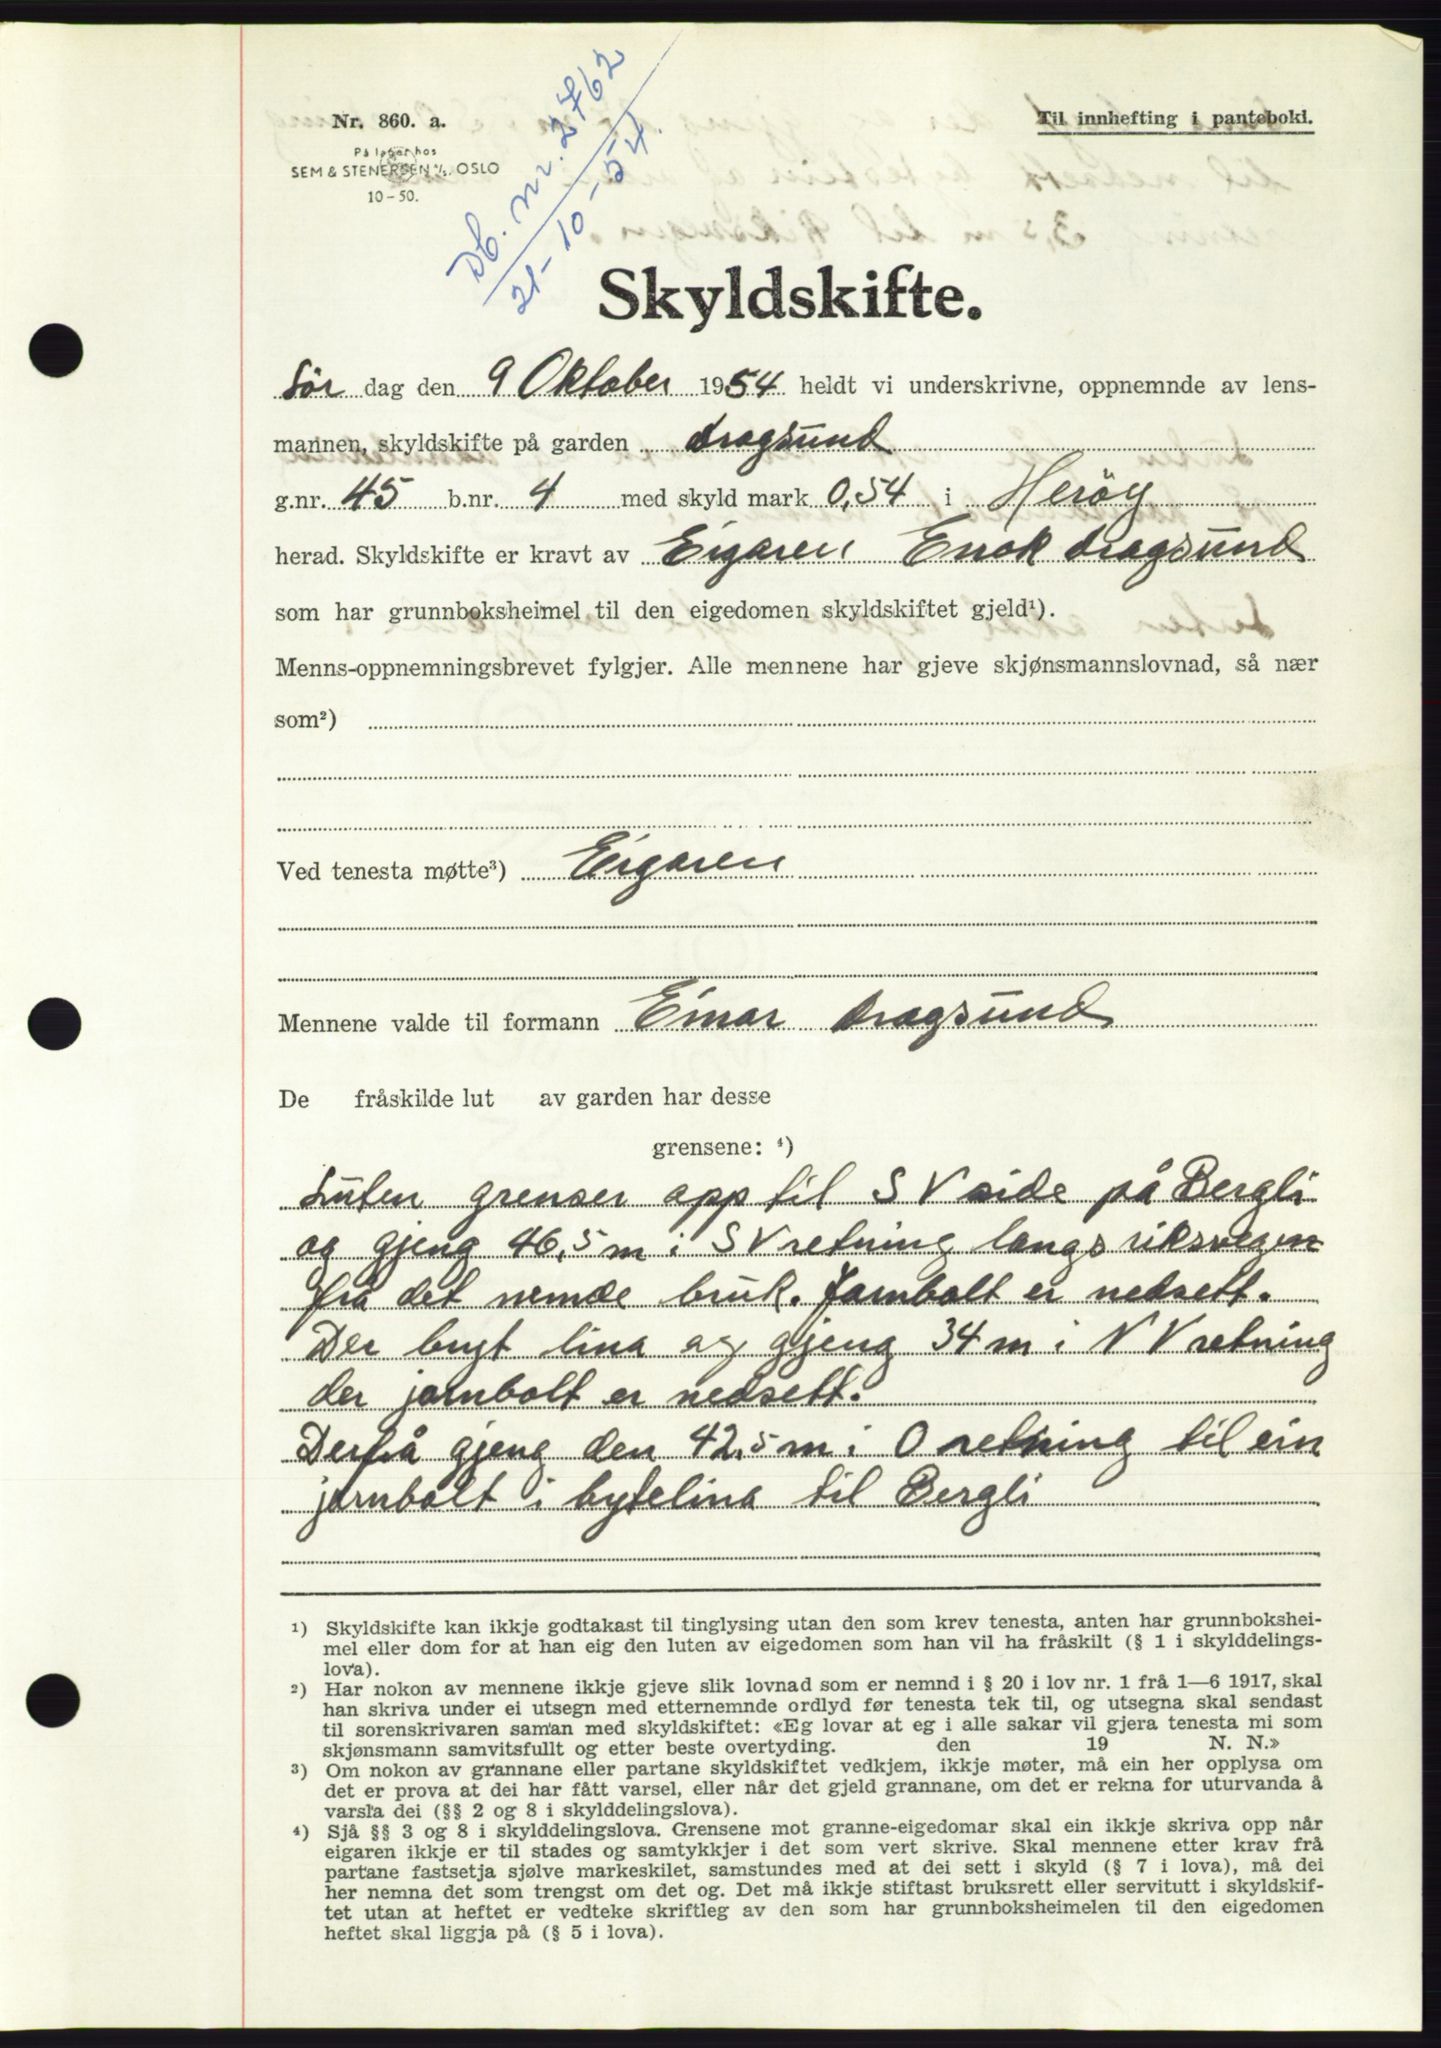 Nr. 860. a.
På lager hos
SEM & STENERSEN A/S, OSLO
10-50.
Db. nr. 2762
21-10-54.
Til innhefting i panteboki.
Skyldskifte.
Lör dag den 9 Oktober 1954 heldt vi underskrivne, oppnemnde av lens-
mannen, skyldskifte på garden Dragsund
g.nr. 45 b.nr. 4 med skyld mark 0,54 i Heröy
herad. Skyldskifte er kravt av Eigaren Enok Dragsund
som har grunnboksheimel til den eigedomen skyldskiftet gjeld¹).
Menns-oppnemningsbrevet fylgjer. Alle mennene har gjeve skjønsmannslovnad, så nær
som²)
Ved tenesta møtte³) Eigaren
Mennene valde til formann Einar Dragsund
De fråskilde lut av garden har desse
grensene: ⁴)
Luten grenser opp til S V side på Bergli
og gjeng 46,5 m i S V retning langs riksvegen
frå det nemde bruk. Jarnbolt er nedsett.
Der bryt lina og gjeng 34 m i N V retning
der jarnbolt er nedsett.
Derfrå gjeng den 42,5 m i O retning til ein
jarnbolt i bytelina til Bergli
¹) Skyldskifte kan ikkje godtakast til tinglysing utan den som krev tenesta, anten har grunnbokshei-
mel eller dom for at han eig den luten av eigedomen som han vil ha fråskilt (§ 1 i skylddelings-
lova).
²) Har nokon av mennene ikkje gjeve slik lovnad som er nemnd i § 20 i lov nr. 1 frå 1—6 1917, skal
han skriva under ei utsegn med etternemnde ordlyd før tenesta tek til, og utsegna skal sendast
til sorenskrivaren saman med skyldskiftet: «Eg lovar at eg i alle sakar vil gjera tenesta mi som
skjønsmann samvitsfullt og etter beste overtyding. den 19 N. N.»
³) Om nokon av grannane eller partane skyldskiftet vedkjem, ikkje møter, må ein her opplysa om
det er prova at dei har fått varsel, eller når det gjeld grannane, om det er rekna for uturvanda å
varsla dei (§§ 2 og 8 i skylddelingslova).
⁴) Sjå §§ 3 og 8 i skylddelingslova. Grensene mot granne-eigedomar skal ein ikkje skriva opp når
eigaren ikkje er til stades og samtykkjer i det som vert skrive. Skal mennene etter krav frå
partane fastsetja sjølve markeskilet, samstundes med at dei sett i skyld (§ 7 i lova), må dei
her nemna det som trengst om det og. Det må ikkje stiftast bruksrett eller servitutt i skyldskif-
tet utan at heftet er vedteke skriftleg av den som har grunnboksheimelen til den eigedomen
heftet skal liggja på (§ 5 i lova).